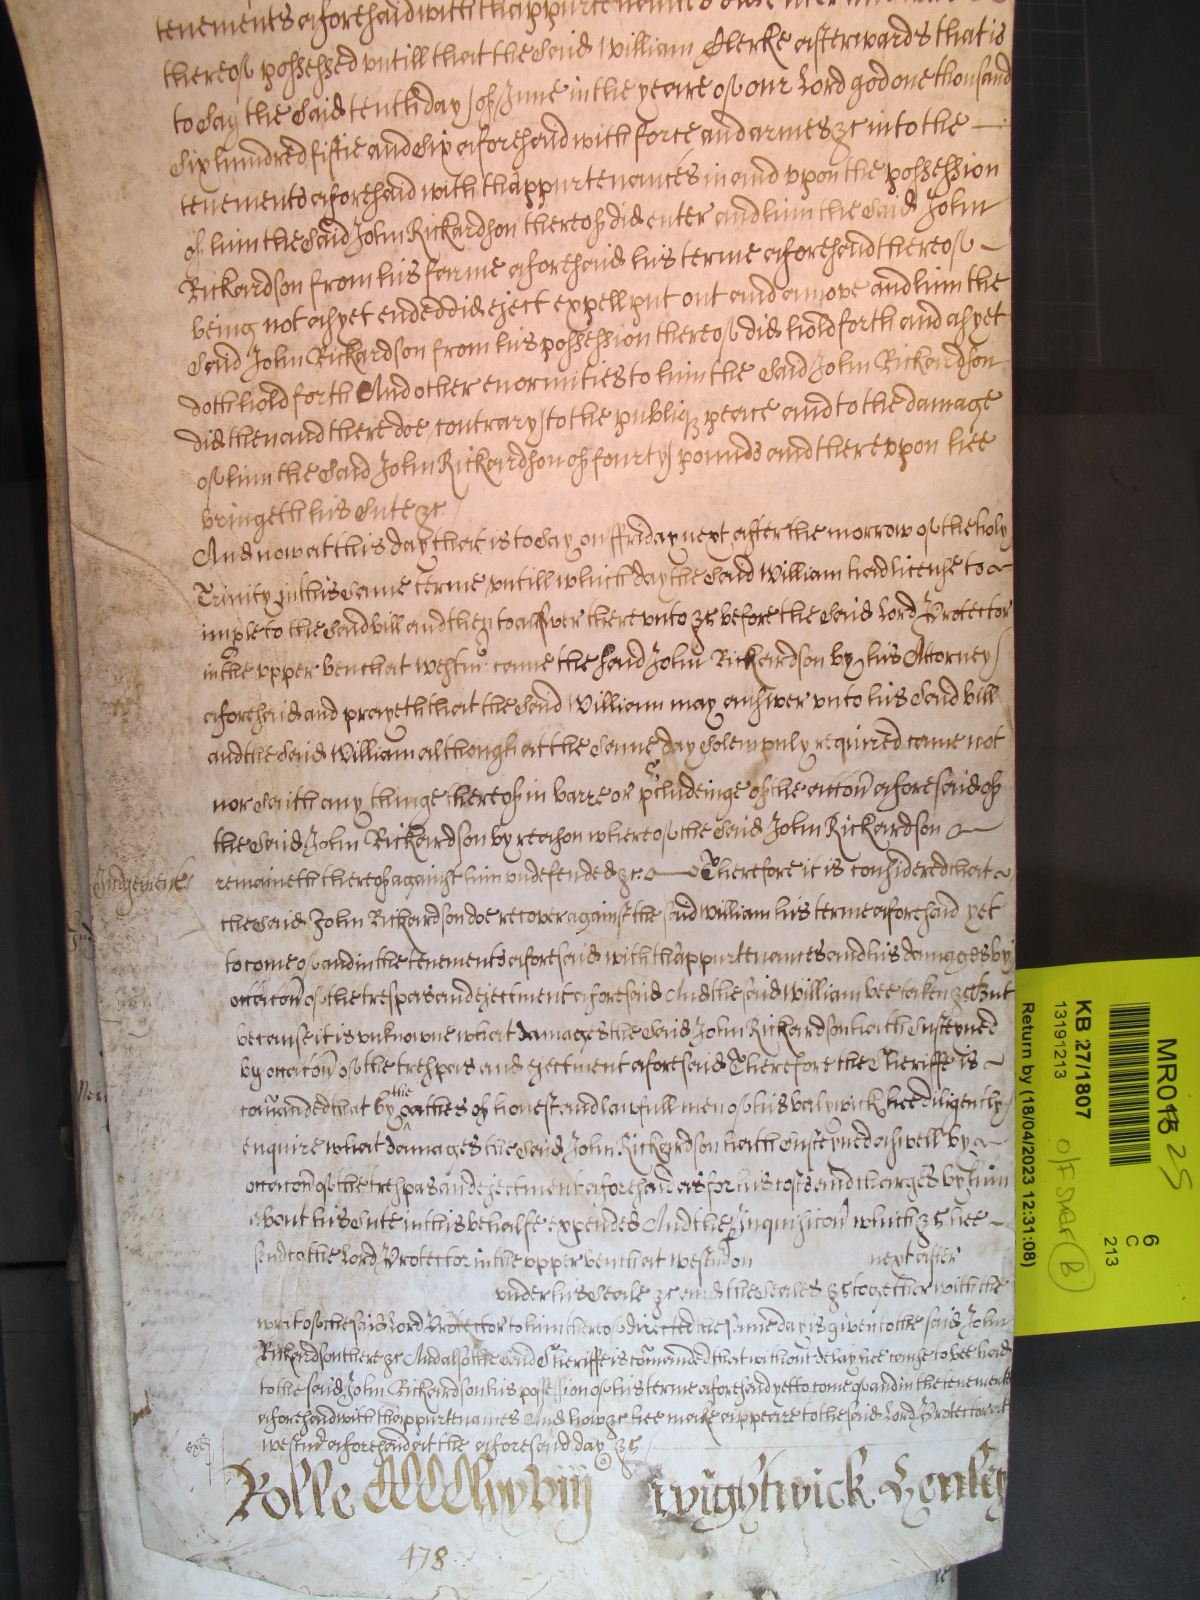 tenements aforesaid with thappurtenances
thereof possessed untill that the said William Clerke afterwards that is
to say the said tenth day of June in the yeare of our Lord god one thousand
six hundred fiftie and six aforesaid with force and armes &c into the
tenements aforesaid with thappurtenances in and upon the possession
of him the said John Rickardson thereof did enter and him the said John
Rickardson from his farme aforesaid his terme aforesaid thereof
being not as yet ended did eject expell put out and amove and him the
said John Rickardson from his possession thereof did hold forth and as yet
doth hold forth And other enormities to him the said John Rickardson
did then and there doe contrary to the publiq peace and to the damage
of him the said John Rickardson of fourty pounds and thereupon hee
bringeth his sute &c
And now at this day that is to say on ffriday next after the morrow of the holy
Trinity in this same terme untill which day the said William had license to
imple to the said bill and then to answer thereunto &c before the said Lord Protector
in the upper bench at Westmr came the said John Rickardson by his Attorney
aforesaid and prayeth that the said William may answer unto his said bill
and the said William although at the same day solempnly required came not
nor saith any thinge thereof in barre or pcludeinge of the accon aforesaid of
the said John Rickardson by reason whereof the said John Rickardson
Judgement
remaineth thereof against him undefended &c Therefore it is considered that
the said John Rickardson doe recover against the said William his terme aforesaid yet
to come of and in the tenements aforesaid with thappurtenances and his damages by
occacon of the trespas and ejectment aforesaid And the said William bee taken &c But
because it is unknowne what damages the said John Rickardson hath susteyned
by occacon of the trespas and ejectment aforesaid Therefore the Sheriffe is
comanded that by the oathes of honest and lawfull men of his balywick hee diligently
enquire what damages the said John Rickardson hath susteyned aswell by
occacon of the trespas and ejectment aforesaid as for his costs and charges by him
about his sute in this behalfe expended And the Inquisicon which &c hee
send to the Lord Protector in the upper bench at Westm on next after
under his seale &c and the seales &c together with the
writ of the said Lord Protector to him thereof directed the same day is given to the said John
Rickardson there &c And also the said Sheriffe is comanded that without delay hee cause to bee had
to the said John Rickardson his possession of his terme aforesaid yet to come of and in the tenements
aforesaid with thappurtenances And how &c hee make appeare to the said Lord Protector att
Westmr aforesaid at the aforesaid day &c
Rolle CCCClxxviij Wightwick Henley
478
MR015
25
KB 27/1807
13191213
Return by (18/04/2023 12:31:08)
6
C
213
B